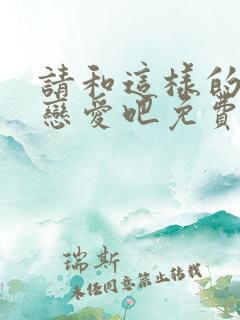 請和這樣的
戀愛吧免費
瑞斯
未任同意禁止轉載